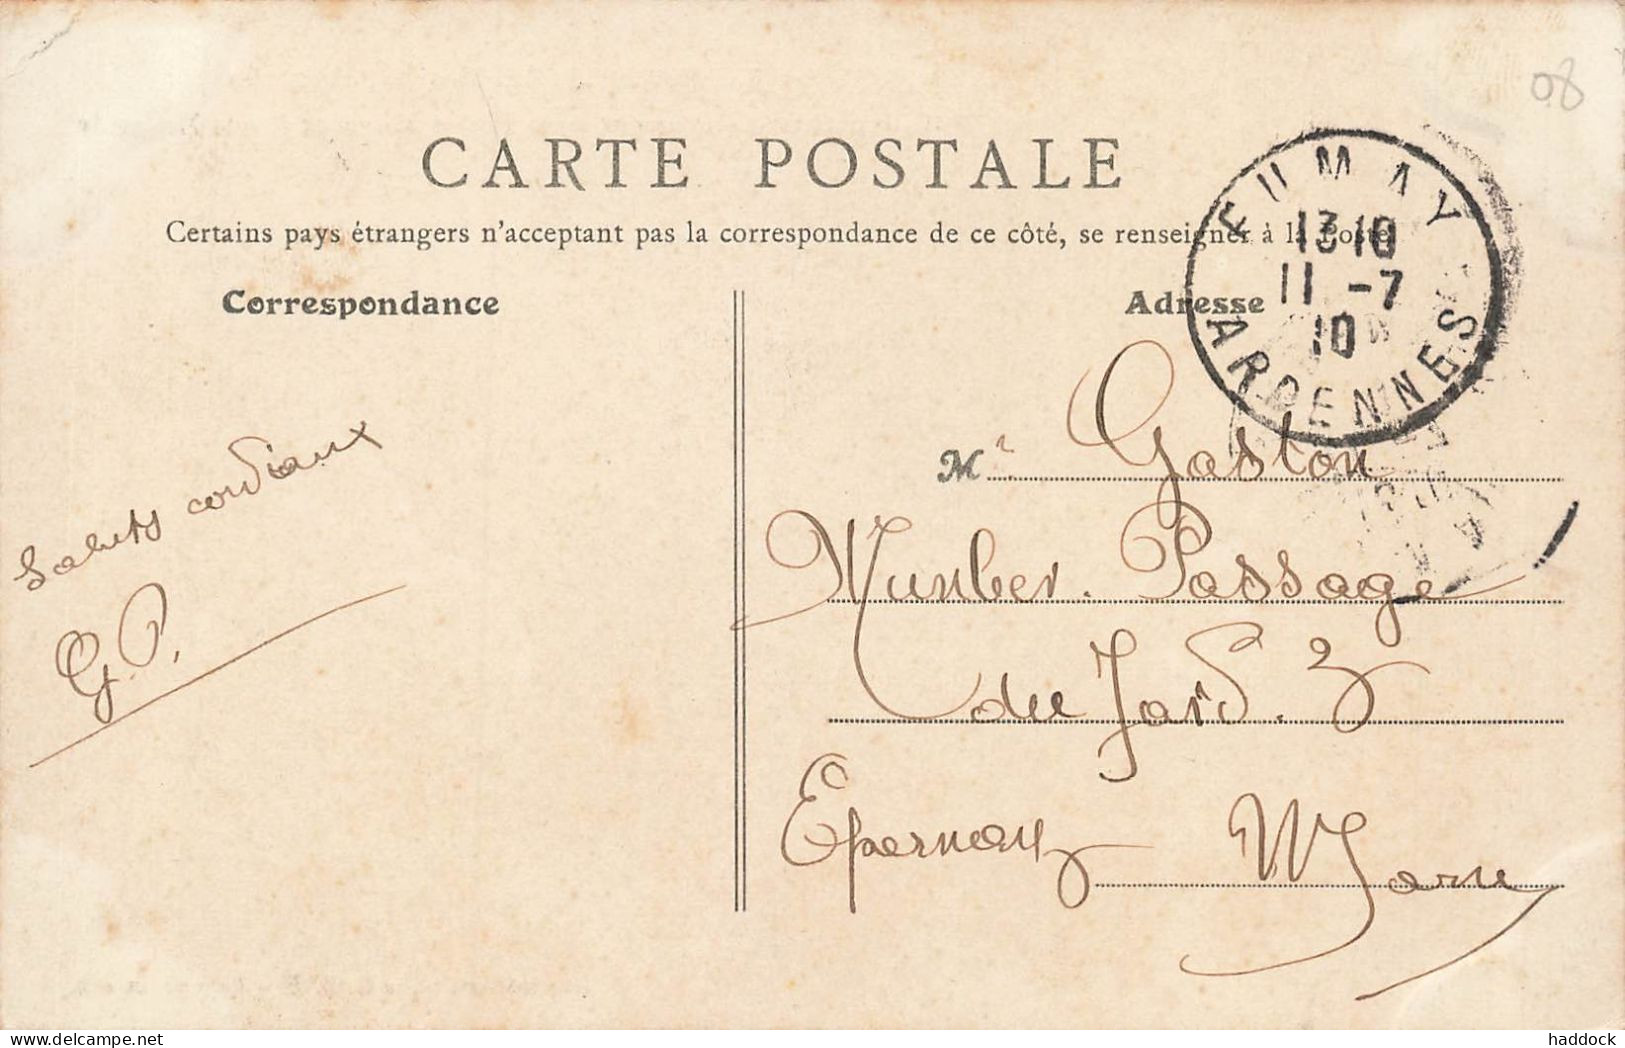 08
CARTE POSTALE
Certains pays étrangers n'acceptant pas la correspondance de ce côté, se renseigner à la Poste
Correspondance
Adresse
FUMAY
13 10
11 -7
10
ARDENNES
Saluts cordiaux
G. P.
Mr Gaston
Munber. Passage
du Jard. 3
Epernay Marne
delcampe.net
haddock